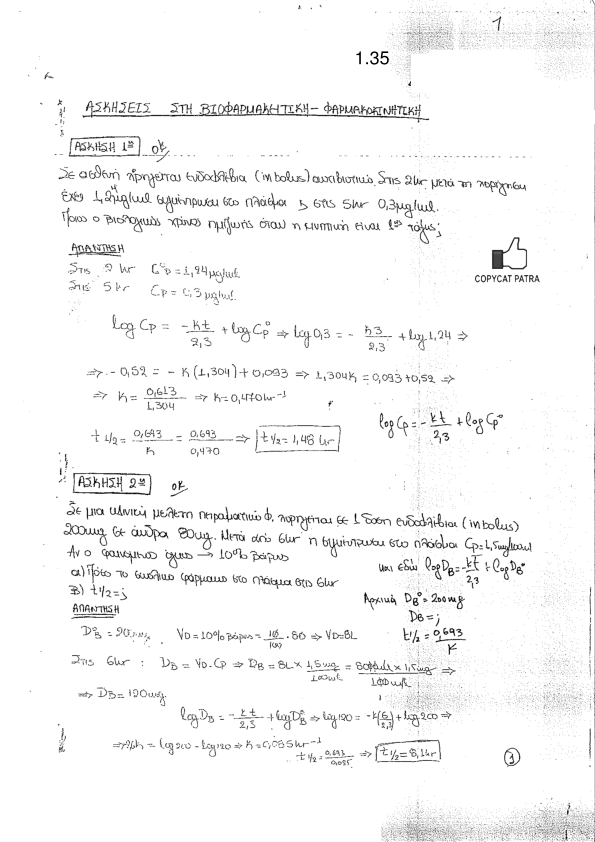 1
1.35
ΑΣΚΗΣΕΙΣ ΣΤΗ ΒΙΟΦΑΡΜΑΚΕΥΤΙΚΗ - ΦΑΡΜΑΚΟΚΙΝΗΤΙΚΗ
ΑΣΚΗΣΗ 1η OK
Σε ασθενή χορηγείται ενδοφλέβια (in bolus) αντιβιοτικό. Στις 2hr μετά τη χορήγηση
έχει 1,24μg/ml συγκέντρωση στο πλάσμα και στις 5hr 0,3μg/ml.
Ποιος ο βιολογικός χρόνος ημιζωής όταν η κινητική είναι 1ης τάξης;
ΑΠΑΝΤΗΣΗ
Στις 2 hr C°p = 1,24μg/ml
Στις 5 hr Cp = 0,3μg/ml
COPYCAT PATRA
log Cp = - kt/2,3 + log Cp° ⇒ log 0,3 = - k3/2,3 + log 1,24 ⇒
⇒ - 0,52 = - k (1,304) + 0,093 ⇒ 1,304k = 0,093 + 0,52 ⇒
⇒ k = 0,613/1,304 ⇒ k = 0,470 hr⁻¹
log Cp = - kt/2,3 + log Cp°
t 1/2 = 0,693/k = 0,693/0,470 ⇒ t 1/2 = 1,48 hr
ΑΣΚΗΣΗ 2η OK
Σε μια κλινική μελέτη πειραματικό φ. χορηγείται σε 1 δόση ενδοφλέβια (in bolus)
200mg σε άνδρα 80kg. Μετά από 6hr η συγκέντρωση στο πλάσμα Cp=1,5mg/100ml
Αν ο φαινομενο όγκος → 10% βάρους
και εδώ log DB = - kt/2,3 + log DB°
α) Πόσο το συνολικό φάρμακο στο πλάσμα στις 6hr
β) t 1/2 = ;
Αρχικά DB° = 200mg
DB = ;
t 1/2 = 0,693/k
ΑΠΑΝΤΗΣΗ
D°B = 200mg VD = 10% βάρους = 10/100 . 80 ⇒ VD = 8L
Στις 6hr : DB = VD . Cp ⇒ DB = 8L × 1,5mg/100ml = 8000ml × 1,5mg/100ml ⇒
⇒ DB = 120mg
log DB = - kt/2,3 + log DB° ⇒ log 120 = -k(6/2,3) + log 200 ⇒
⇒ 2,6k = log 200 - log 120 ⇒ k = 0,085hr⁻¹
t 1/2 = 0,693/0,085 ⇒ t 1/2 = 8,1hr
1